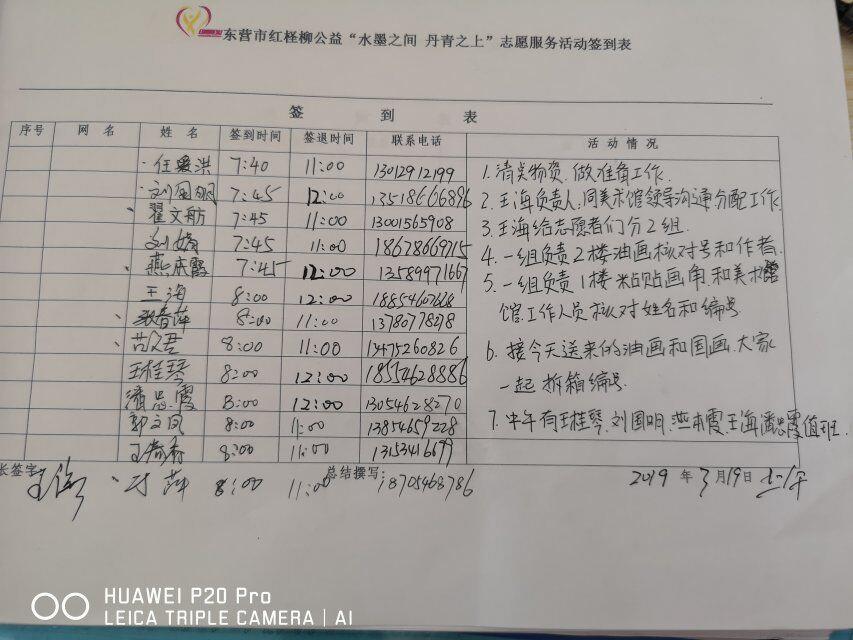 东营市红柽柳公益“水墨之间 丹青之上”志愿服务活动签到表
签 到 表
序号 网 名 姓 名 签到时间 签退时间 联系电话 活 动 情 况
7:40 11:00 13012912199 1.清点物资.做准备工作.
刘国明 7:45 12:00 13518666896 2.王海负责人.同美术馆领导沟通分配工作.
翟文舫 7:45 11:00 13001565908 3.王海给志愿者们分2组.
刘娟 7:45 11:00 18678669715 4.一组负责2楼油画核对号和作者.
燕本霞 7:45 12:00 13589971667 5.一组负责1楼粘贴画角.和美术
王海 8:00 12:00 馆工作人员核对姓名和编号.
8:00 11:00 13780778278
8:00 11:00 13475260826 6.接今天送来的油画和国画.大家
王桂琴 8:00 12:00 18554628886 一起拆箱编号.
潘思霞 8:00 12:00 13054628270
郭文凤 8:00 11:00 13854659228 7.中午有王桂琴.刘国明.燕本霞.王海潘思霞值班.
8:00 11:00
长签字 王海 萍 8:00 11:00 总结撰写: 18705468786 2019 年 3 月 19 日 上午
HUAWEI P20 Pro
LEICA TRIPLE CAMERA | AI